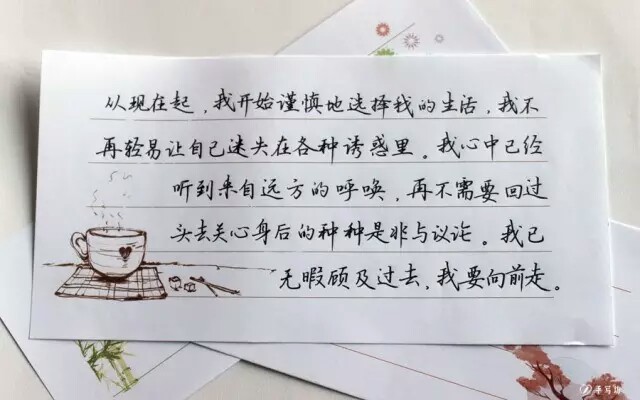 从现在起，我开始谨慎地选择我的生活，我不
再轻易让自己迷失在各种诱惑里。我心中已经
听到来自远方的呼唤，再不需要回过
头去关心身后的种种是非与议论。我已
无暇顾及过去，我要向前走。